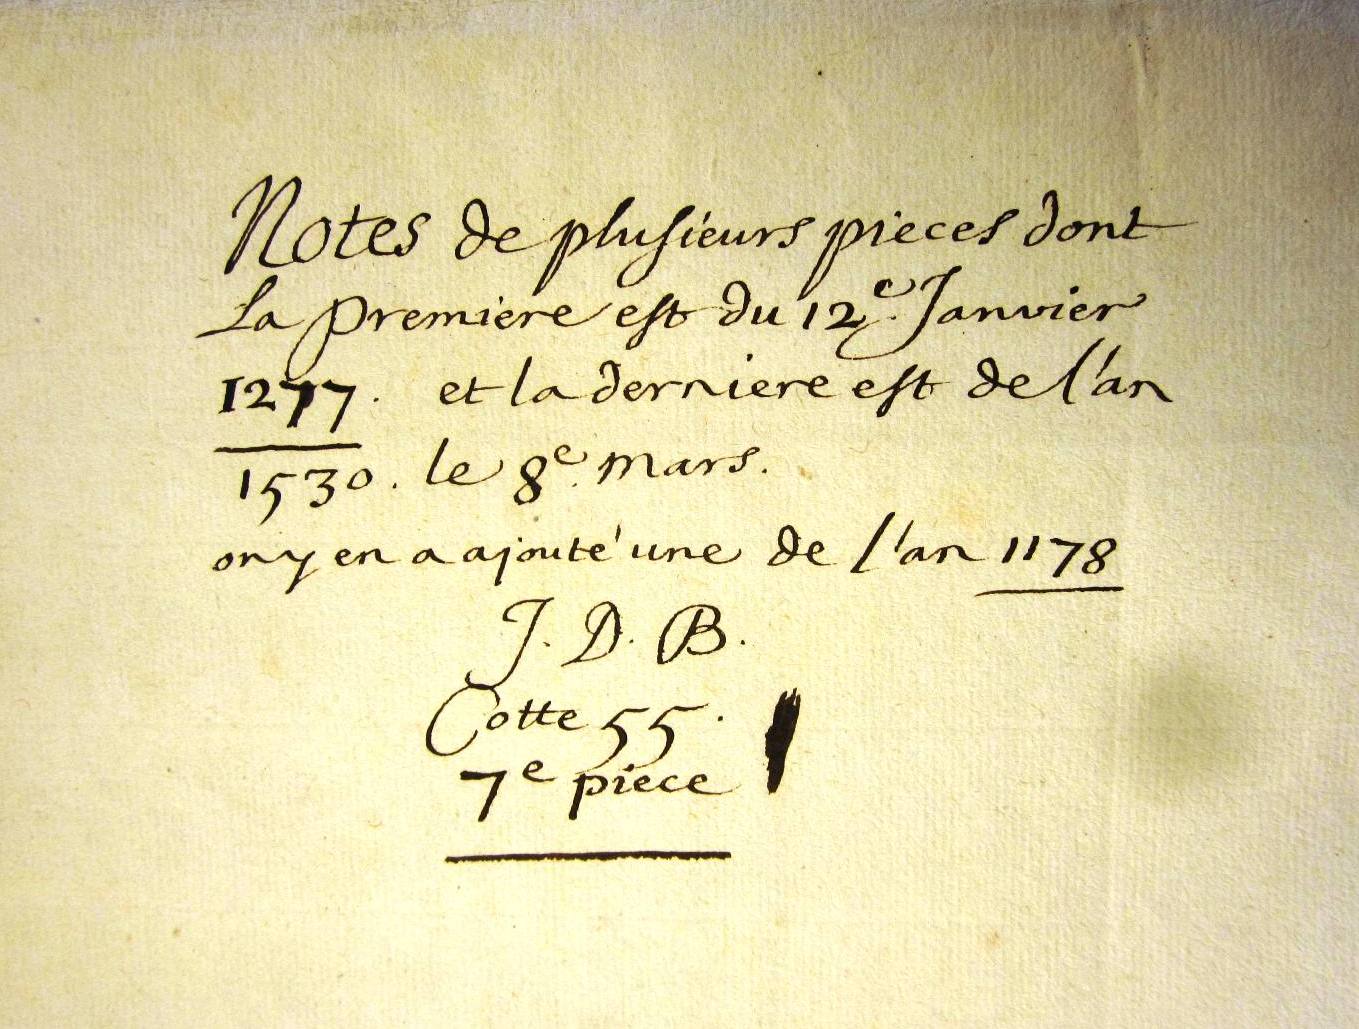 Notes de plusieurs pieces dont
La premiere est du 12e. Janvier
1277. et la derniere est de l'an
1530. le 8e. mars.
on y en a ajouté une de l'an 1178
J. D. B.
Cotte 55.
7e piece